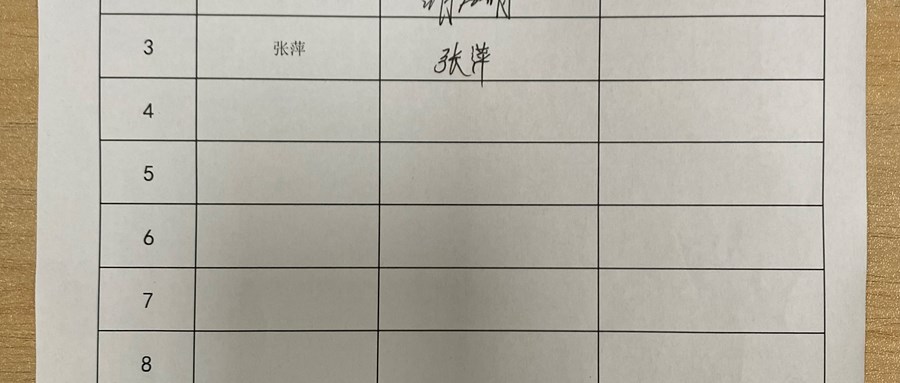 3 张萍 张萍
4
5
6
7
8